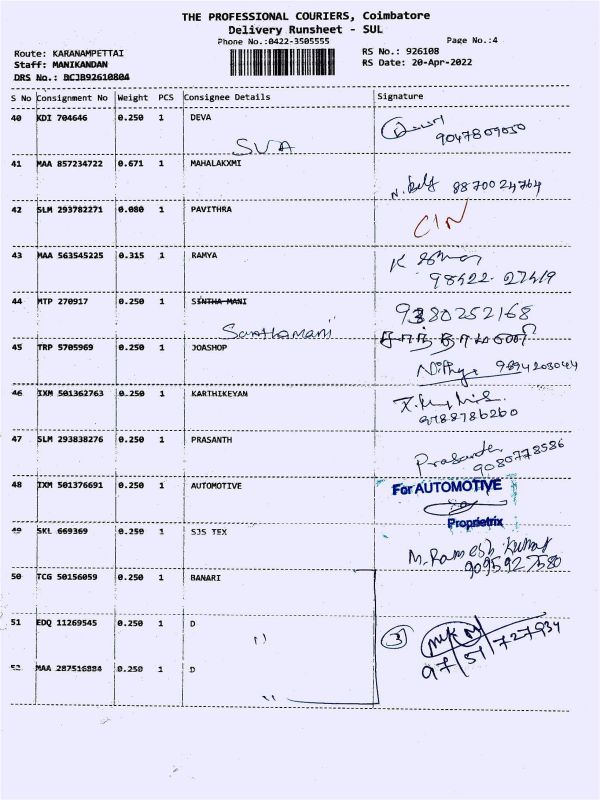 THE PROFESSIONAL COURIERS, Coimbatore
Delivery Runsheet - SUL
Phone No.:0422-3505555 Page No.:4
Route: KARANAMPETTAI RS No.: 926108
Staff: MANIKANDAN RS Date: 20-Apr-2022
DRS No.: BCJB92610804
S No Consignment No Weight PCS Consignee Details Signature
40 KDI 704646 0.250 1 DEVA
9047809050
SVA
41 MAA 857234722 0.671 1 MAHALAKXMI
8870024764
42 SLM 293782271 0.080 1 PAVITHRA
CIN
43 MAA 563545225 0.315 1 RAMYA
98422-27419
44 MTP 270917 0.250 1 SINTHA MANI
9380252168
Santhamani
சாந்தாமணி
45 TRP 5705969 0.250 1 JOASHOP
Nithya 9894203044
46 IXM 501362763 0.250 1 KARTHIKEYAN
9788786260
47 SLM 293838276 0.250 1 PRASANTH
Prasanth
9080778586
48 IXM 501376691 0.250 1 AUTOMOTIVE
For AUTOMOTIVE
Proprietrix
49 SKL 669369 0.250 1 SJS TEX
M. Ramesh Kumar
9095927580
50 TCG 50156059 0.250 1 BANARI
51 EDQ 11269545 0.250 1 D
3
97/51/727934
52 MAA 287516884 0.250 1 D